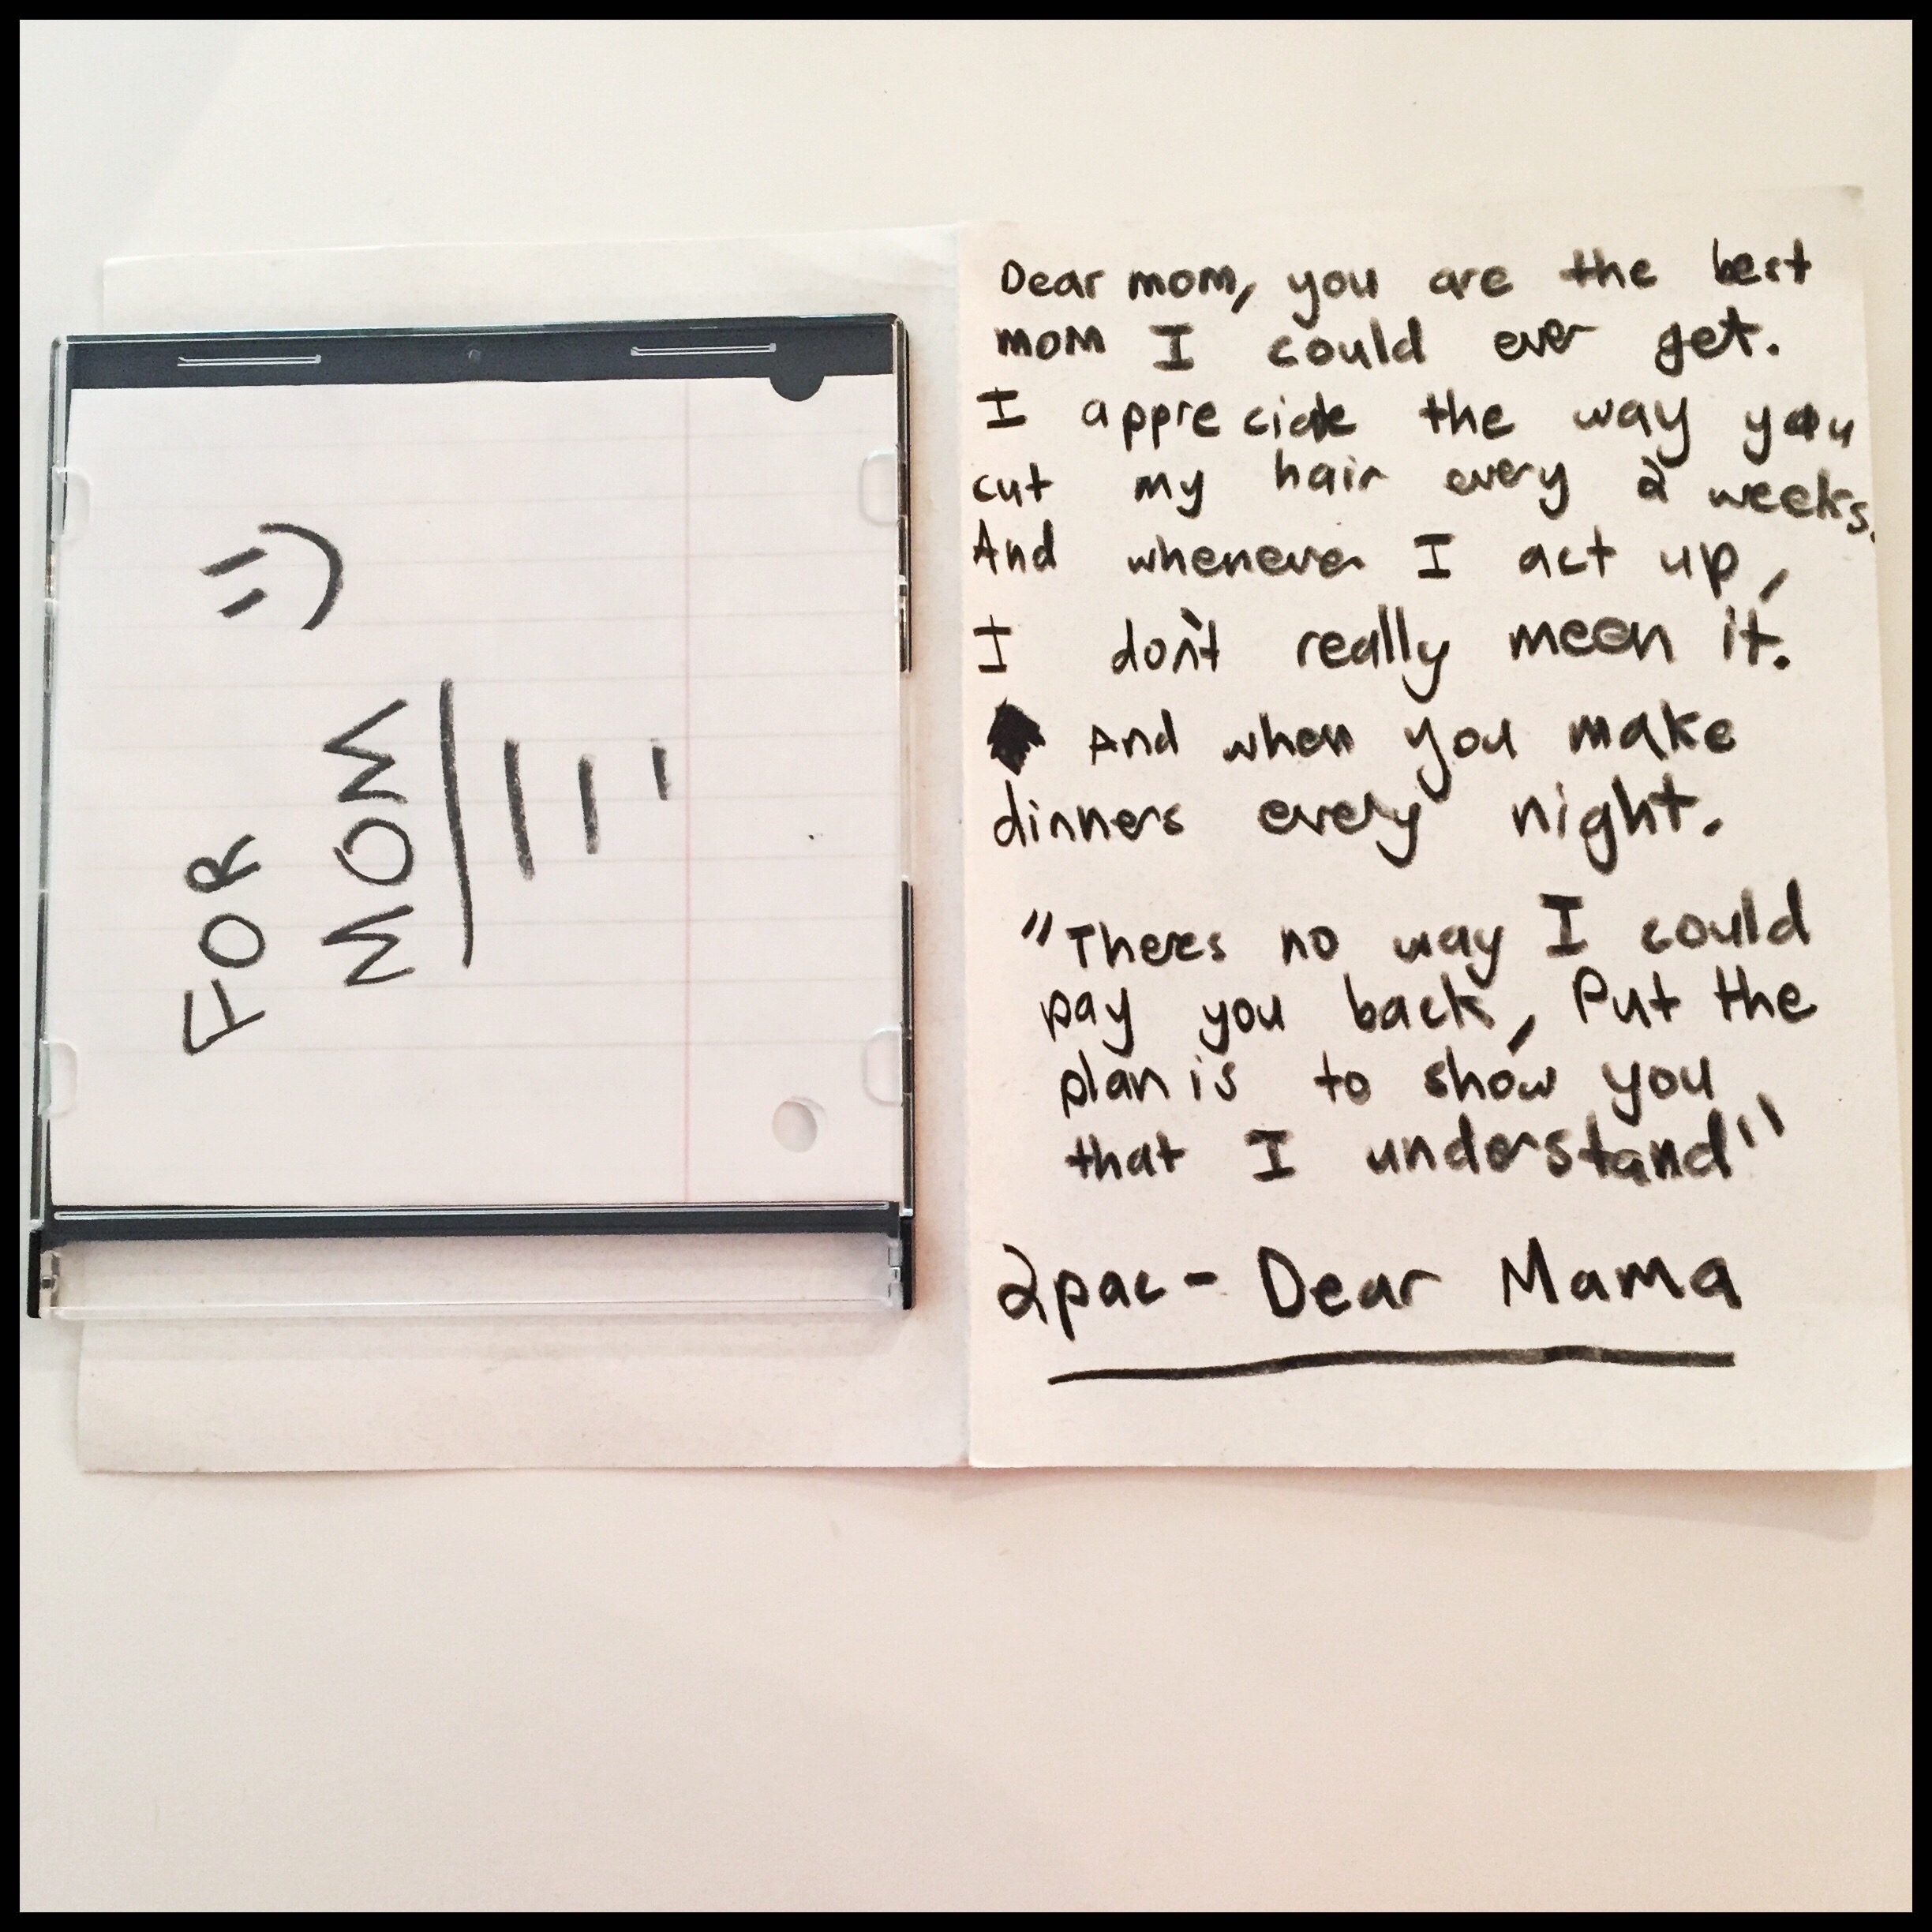 FOR =)
MOM
Dear mom, you are the best
mom I could ever get.
I appreciate the way you
cut my hair every 2 weeks.
And whenever I act up,
I don't really meen it.
And when you make
dinners every night.
"Theres no way I could
pay you back, Put the
plan is to show you
that I understand"
2pac - Dear Mama